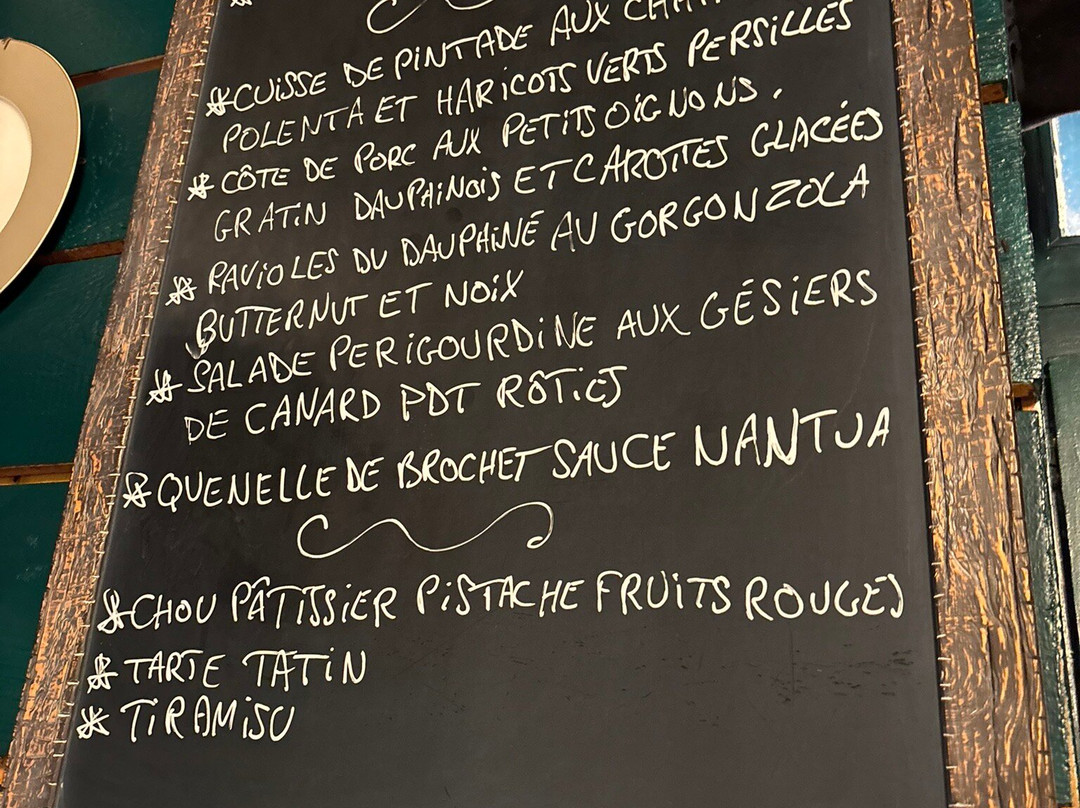 *CUISSE DE PINTADE AUX
POLENTA ET HARICOTS VERTS PERSILLÉS
*CÔTE DE PORC AUX PETITS OIGNONS.
GRATIN DAUPHINOIS ET CAROTTES GLACÉES
* RAVIOLES DU DAUPHINÉ AU GORGONZOLA
BUTTERNUT ET NOIX
* SALADE PERIGOURDINE AUX GÉSIERS
DE CANARD PDT RÔTIES
*QUENELLE DE BROCHET SAUCE NANTUA
*CHOU PÂTISSIER PISTACHE FRUITS ROUGES
* TARTE TATIN
* TIRAMISU